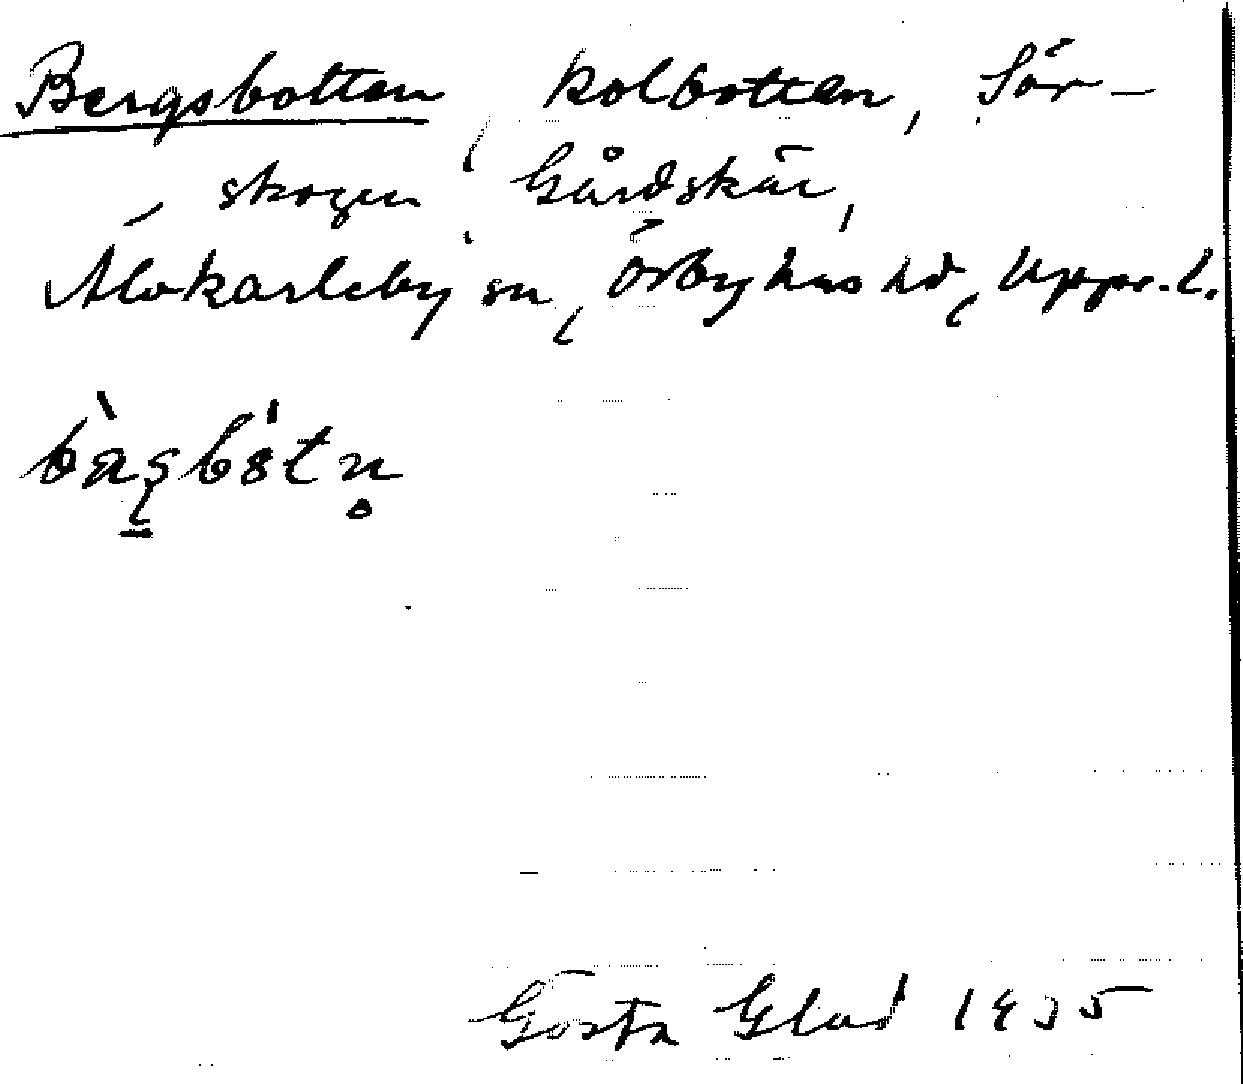 Bergsbotten, kolbotten, Sör-
skogen, Gårdskär,
Älvkarleby sn, Örbyhus hd, Upps. l.
Gösta Glad 1935